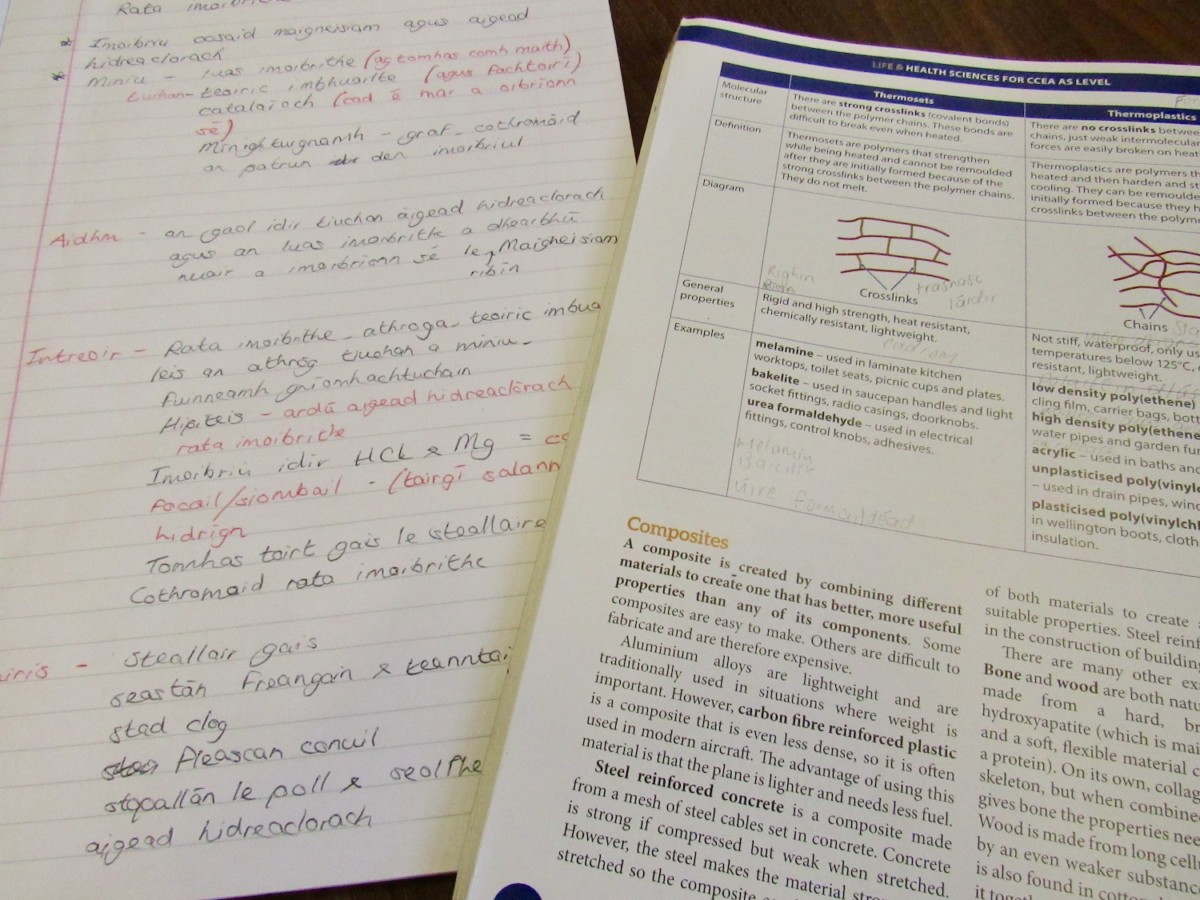 Rata
* Imoibriu ocsaid maigneisiam agus aigead
hidreaclorach
* Miniu - luas imoibrithe (ag tomhas comh maith)
tiuchan - teoiric imbhuailte (agus fachtoirí)
catalaíoch (cad é mar a oibrionn
sé)
- graf - cothromóid
an patrun den imoibriul
Aidhm - an gaol idir tiuchan aigead hidreaclorach
agus an luas imoibrithe a dhearbhú
nuair a imoibrionn sé le, Maigneisiam
ribin
Intreoir - Rata imoibrithe - athroga - teoiric imbua
leis an athróg tiuchan a miniu -
Fuinneamh gniomhachtuchain
Hipiteis - ardú aigead hidreaclórach
rata imoibrithe
Imoibriú idir HCl & Mg =
focail/siombail - (tairgí salann
hidrigin
Tomhas toirt gais le steallaire
Cothromaid rata imoibrithe
- steallair gais
seastán freangain & teanntai
stad clog
fleascan conuil
stopallán le poll &
aigead hidreaclorach
LIFE & HEALTH SCIENCES FOR CCEA AS LEVEL
Thermosets
Thermoplastics
Molecular
structure
There are strong crosslinks (covalent bonds)
between the polymer chains. These bonds are
difficult to break even when heated.
There are no crosslinks between
chains, just weak intermolecular
forces are easily broken on heat
Definition
Thermosets are polymers that strengthen
while being heated and cannot be remoulded
after they are initially formed because of the
strong crosslinks between the polymer chains.
They do not melt.
Thermoplastics are polymers th
heated and then harden and st
cooling. They can be remoulde
initially formed because they h
crosslinks between the polym
Diagram
Crosslinks
trasnasc
láidir
Chains
General
properties
Righin
Rigid and high strength, heat resistant,
chemically resistant, lightweight.
éadrom
Not stiff, waterproof, only us
temperatures below 125°C,
resistant, lightweight.
Examples
melamine – used in laminate kitchen
worktops, toilet seats, picnic cups and plates.
bakelite – used in saucepan handles and light
socket fittings, radio casings, doorknobs.
urea formaldehyde – used in electrical
fittings, control knobs, adhesives.
Melamin
Úire formaildéad
low density poly(ethene)
cling film, carrier bags, bott
high density poly(ethene
water pipes and garden fur
acrylic – used in baths and
unplasticised poly(vinyl
– used in drain pipes, wind
plasticised poly(vinylch
in wellington boots, cloth
insulation.
Composites
A composite is created by combining different
materials to create one that has better, more useful
properties than any of its components. Some
composites are easy to make. Others are difficult to
fabricate and are therefore expensive.
Aluminium alloys are lightweight and are
traditionally used in situations where weight is
important. However, carbon fibre reinforced plastic
is a composite that is even less dense, so it is often
used in modern aircraft. The advantage of using this
material is that the plane is lighter and needs less fuel.
Steel reinforced concrete is a composite made
from a mesh of steel cables set in concrete. Concrete
is strong if compressed but weak when stretched.
However, the steel makes the material
stretched so the composite
of both materials to create
suitable properties. Steel reinf
in the construction of building
There are many other ex
Bone and wood are both natu
made from a hard, br
hydroxyapatite (which is mai
and a soft, flexible material c
a protein). On its own, collag
skeleton, but when combine
gives bone the properties nee
Wood is made from long cell
by an even weaker substanc
is also found in cotto
it toget